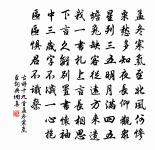 孟冬寒氣至北風何慘
慄愁多知夜長仰觀眾
星列三五明月滿四五
蟾兔缺客從遠方來遺
我一書札上言長相思
下言久離別置書懷袖
中三歲字不滅一心抱
區區懼君不識察
古詩十九首孟冬寒氣